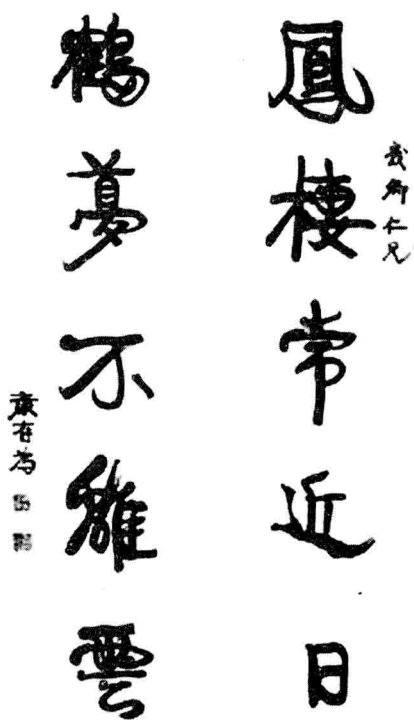 鳳棲常近日
仁兄
鶴夢不離雲
康有為